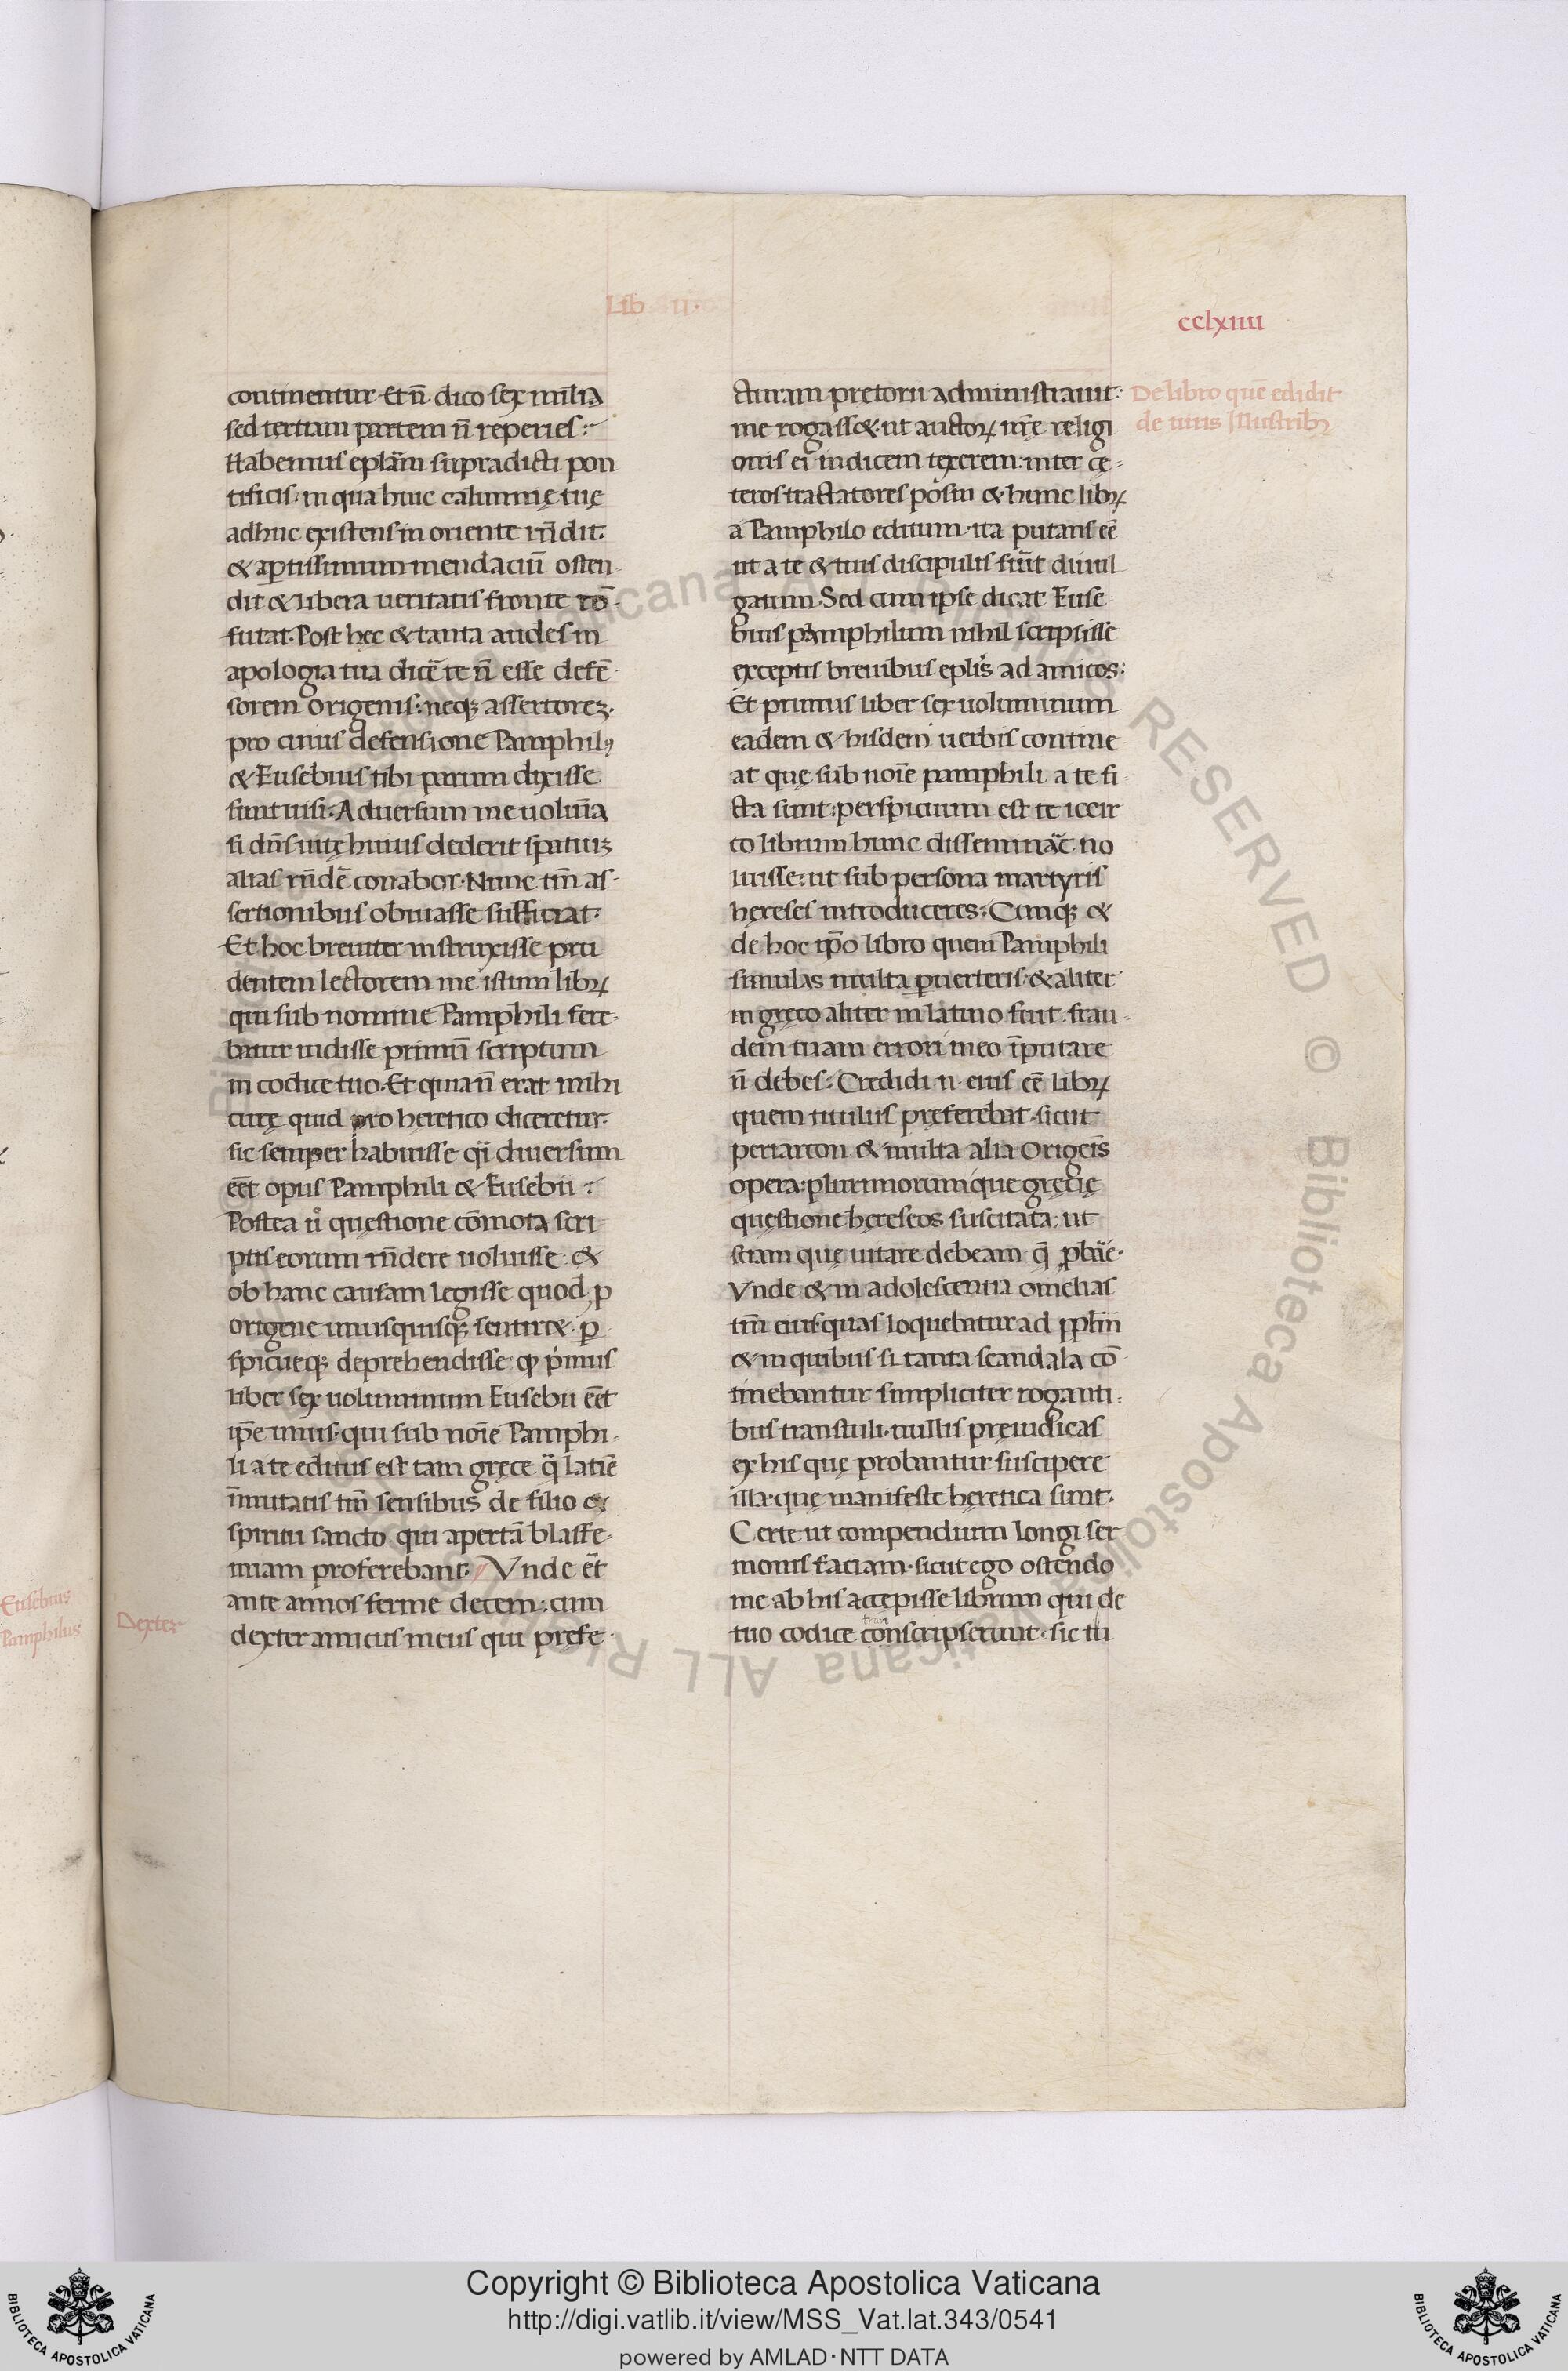 Lib II
cclxiiii
continentur. Et n̄ dico sex milia
sed tertiam partem n̄ reperies:
Habemus eplām supradicti pon
tificis. in qua huic calumnię tuę
adhuc existens in oriente rn̄dit.
& aptissimum mendaciū osten-
dit & libera ueritatis fronte cō-
futat. Post hęc & tanta audes in
apologia tua dicē te n̄ esse defē-
sorem Origenis: neqꝫ assertorēꝫ.
pro cuius defensione Pamphilꝰ
& Eusebius tibi parum dixisse
sunt uisi. Aduersum me uolum̄a
si dn̄s uitę huius dederit spatiuꝫ
alias rn̄dē conabor. Nunc tm̄ as-
sertionibus obuiasse sufficiat.
Et hoc breuiter instruxisse pru
dentem lectorem me istum libꝝ
qui sub nomine Pamphili fere-
batur uidisse primū scriptum
in codice tuo. Et quia n̄ erat mihi
curę quid pro heretico diceretur.
sic semper habuisse qͥ diuersum
eēt opus Pamphili & Eusebii:
Postea uͦ questione cōmota scri
ptis eorum rn̄dere uoluisse. &
ob hanc causam legisse quod ꝓ
origene unusquisqꝫ sentiret. ꝑ
spicueqꝫ deprehendisse ꝙ pͥmus
liber sex uoluminum Eusebii eēt
ip̄e unus. qui sub noīe Pamphi-
li a te editus est tam gręce qͣ latīe
īmutatis tm̄ sensibus de filio &
spiritu sancto qui apertā blasfe-
miam proferebant. Vnde ēt
ante annos ferme decem: cum
dexter amicus meus qui prefe-
Dexter
Eusebius
Pamphilus
cturam pretorii administrauit:
me rogasset. ut auctorꝝ nr̄e religi
onis ei indicem texerem: inter cę-
teros tractatores posui & hunc libꝝ
a Pamphilo editum. ita putans eē
ut a te & tuis discipulis fiūt diuul
gatum. Sed cum ipse dicat Euse
bius pAmphilum nihil scripsisse
exceptis breuibus eplis ad amicos:
Et primus liber sex uoluminum
eadem & hisdem uerbis contine
at quę sub noīe pamphili a te fi-
cta sunt: perspicuum est te iccir
co librum hunc disseminaē no
luisse: ut sub persona martyris
hęreses introduceres. Cunqꝫ &
de hoc ip̄o libro quem Pamphili
simulas multa ꝑuerteris. & aliter
in gręco aliter in latino sint. frau-
dem tuam errori meo īputare
n̄ debes: Credidi n. eius eē libꝝ
quem titulus pręferebat. sicut
periarcon & multa alia Origeīs
opera: plurimorumque gręcię
quęstione hęreseos suscitata: ut
sciam quę uitare debeam qͣ ꝓbāe.
Vnde & in adolescentia omelias
tm̄ eius. quas loquebatur ad pplm̄
& in quibus si tanta scandala cō
tinebantur simpliciter roganti-
bus transtuli. nullis pręiudicas
ex his quę probantur suscipere
illa. quę manifeste hęretica sunt.
Certe ut compendium longi ser
monis faciam. sicut ego ostendo
me ab his accepisse librum qui de
tuo codice conscripserunt. sic tu
De libro quē edidit
de uiris Illustribꝫ
Copyright © Biblioteca Apostolica Vaticana
http://digi.vatlib.it/view/MSS_Vat.lat.343/0541
powered by AMLAD·NTT DATA
BIBLIOTECA APOSTOLICA VATICANA
BIBLIOTECA APOSTOLICA VATICANA
© Biblioteca Apostolica Vaticana ALL RIGHTS RESERVED